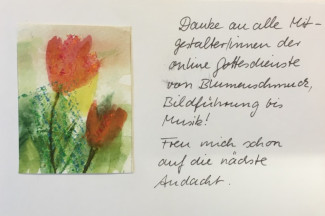 Danke an alle Mit-
gestalter/innen der
online Gottesdienste
von Blumenschmuck,
Bildführung bis
Musik!
Freu mich schon
auf die nächste
Andacht.